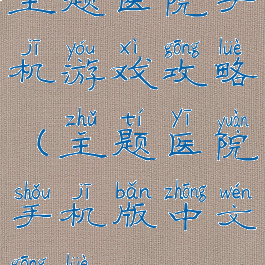 主题医院手
jī yóu xì gōng lüè
机游戏攻略
zhǔ tí yī yuàn
(主题医院
shǒu jī bǎn zhōng wén
手机版中文
gōng lüè